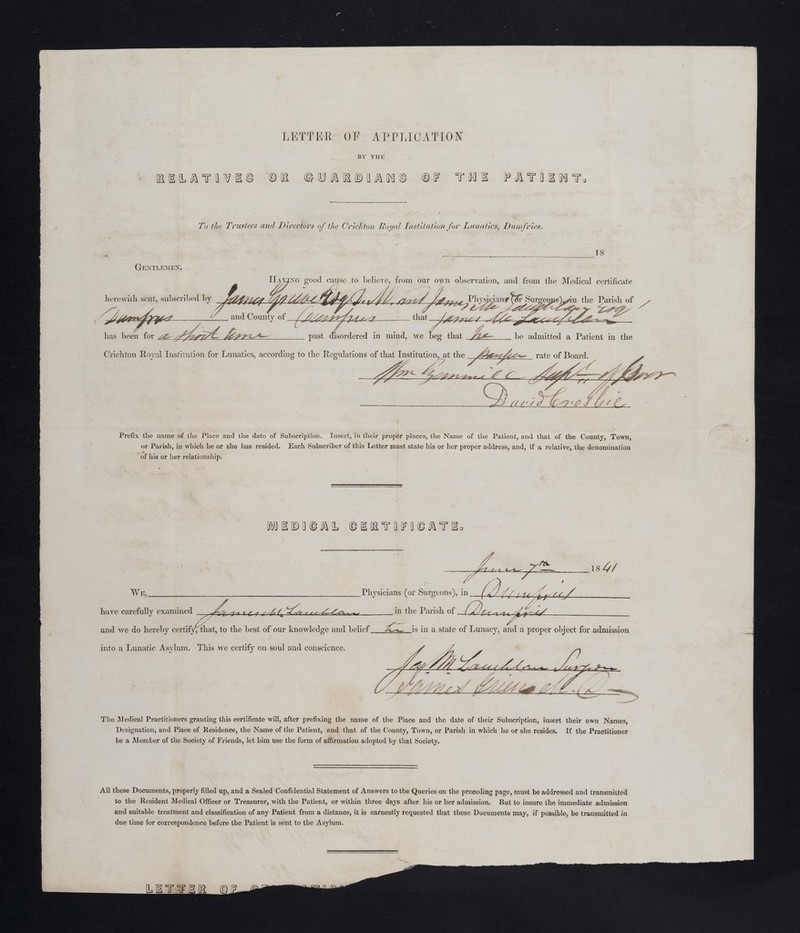 LETTER OF APPLICATION
BY THE
RELATIVES OR GUARDIANS OF THE PATIENT.
To the Trustees and Directors of the Crichton Royal Institution for Lunatics, Dumfries.
18
GENTLEMEN,
HAVING good cause to believe, from our own observation, and from the Medical certificate
herewith sent, subscribed by James Grieve Esq and James Physicians (or Surgeons), in the Parish of
Dumfries and County of Dumfries that James Mc Lauchlan
has been for a short time past disordered in mind, we beg that he be admitted a Patient in the
Crichton Royal Institution for Lunatics, according to the Regulations of that Institution, at the pauper rate of Board.
Wm Gemmill Supt. of Poor
David Crosbie
Prefix the name of the Place and the date of Subscription. Insert, in their proper places, the Name of the Patient, and that of the County, Town,
or Parish, in which he or she has resided. Each Subscriber of this Letter must state his or her proper address, and, if a relative, the denomination
of his or her relationship.
MEDICAL CERTIFICATE.
June 7th 1841
WE, Physicians (or Surgeons), in Dumfries
have carefully examined James Mc Lauchlan in the Parish of Dumfries
and we do hereby certify, that, to the best of our knowledge and belief he is in a state of Lunacy, and a proper object for admission
into a Lunatic Asylum. This we certify on soul and conscience.
Jas Mc Lauchlan Surgeon
James Grieve M.D
The Medical Practitioners granting this certificate will, after prefixing the name of the Place and the date of their Subscription, insert their own Names,
Designation, and Place of Residence, the Name of the Patient, and that of the County, Town, or Parish in which he or she resides. If the Practitioner
be a Member of the Society of Friends, let him use the form of affirmation adopted by that Society.
All these Documents, properly filled up, and a Sealed Confidential Statement of Answers to the Queries on the preceding page, must be addressed and transmitted
to the Resident Medical Officer or Treasurer, with the Patient, or within three days after his or her admission. But to insure the immediate admission
and suitable treatment and classification of any Patient from a distance, it is earnestly requested that these Documents may, if possible, be transmitted in
due time for correspondence before the Patient is sent to the Asylum.
LETTER OF